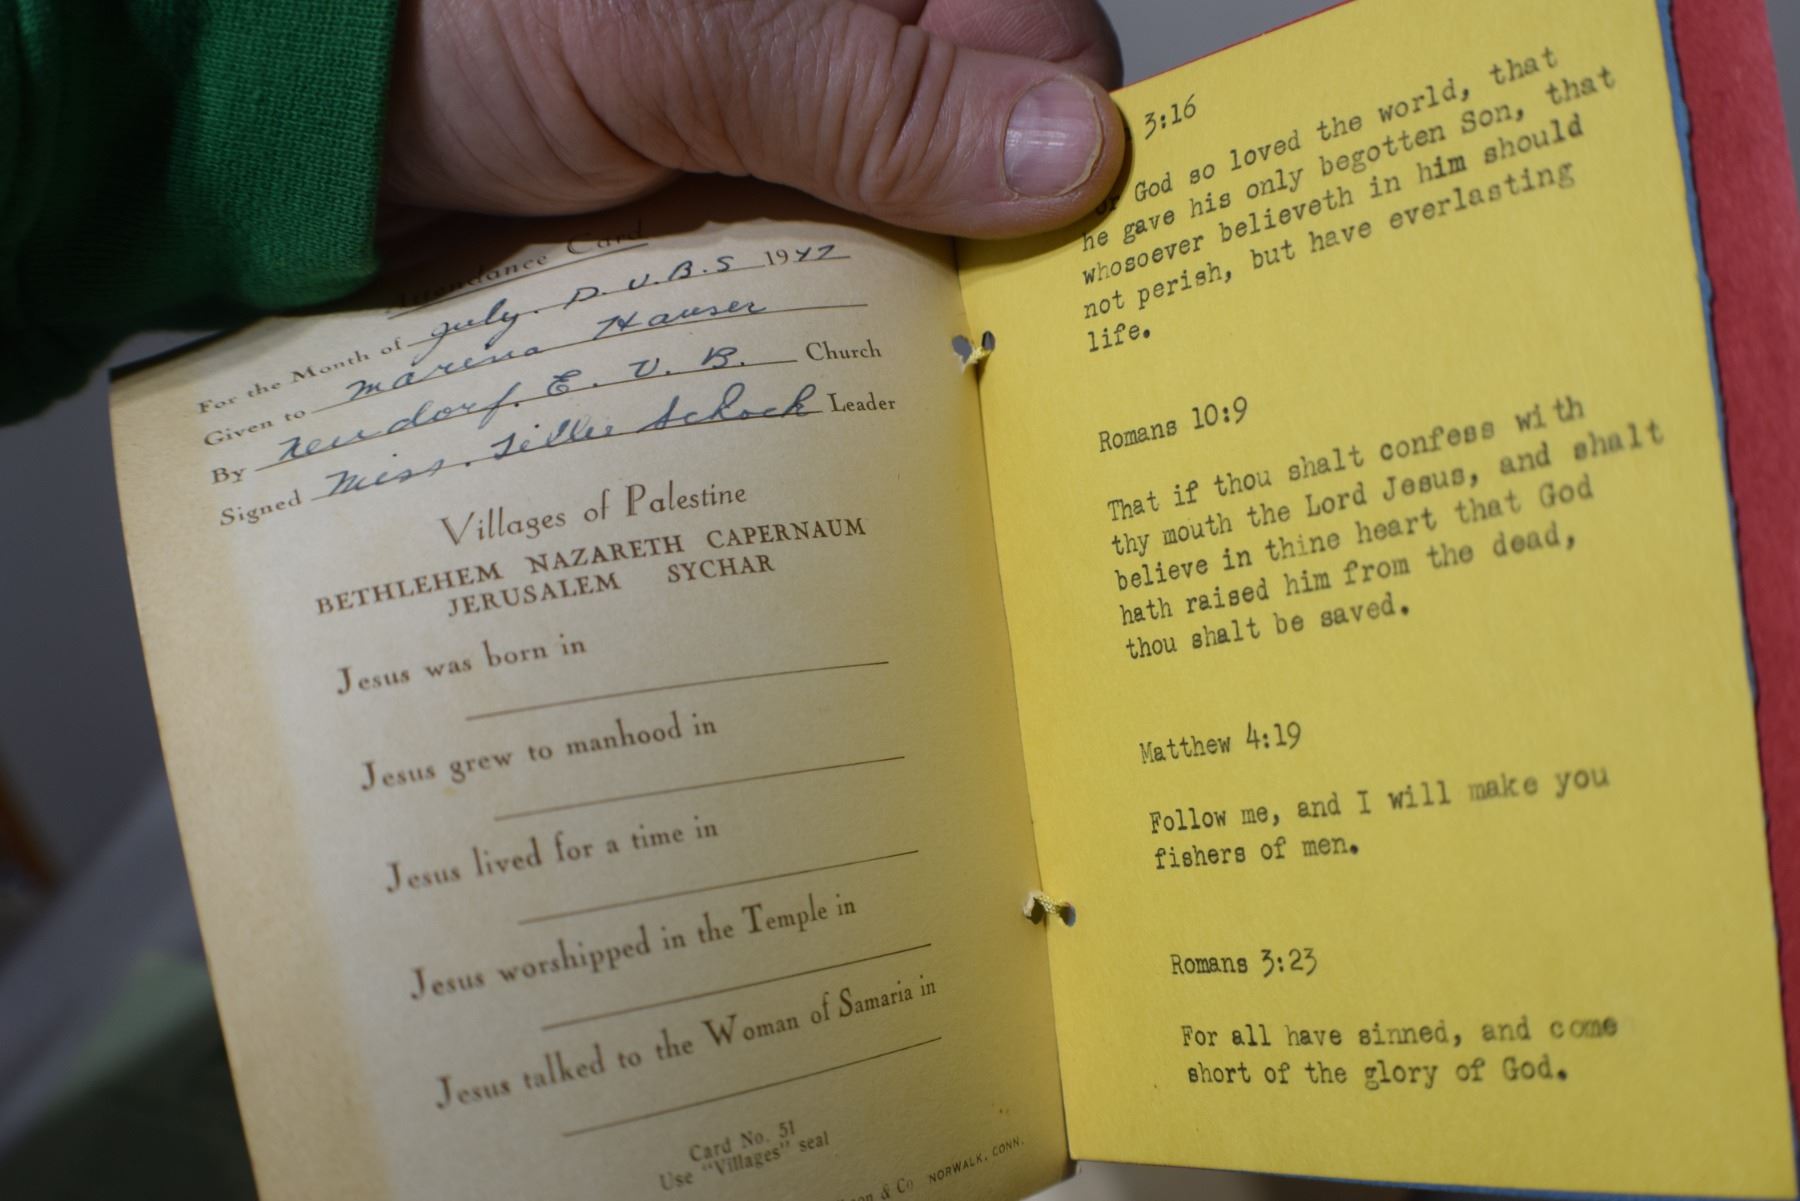 Attendance Card
For the Month of July. D.V.B.S 1947
Given to Marena Hauser
By Neudorf. E. U. B. Church
Signed Miss. Tillie Schock Leader
Villages of Palestine
BETHLEHEM NAZARETH CAPERNAUM
JERUSALEM SYCHAR
Jesus was born in
Jesus grew to manhood in
Jesus lived for a time in
Jesus worshipped in the Temple in
Jesus talked to the Woman of Samaria in
Card No. 51
Use "Villages" seal
& Co NORWALK, CONN.
3:16
God so loved the world, that
he gave his only begotten Son, that
whosoever believeth in him should
not perish, but have everlasting
life.
Romans 10:9
That if thou shalt confess with
thy mouth the Lord Jesus, and shalt
believe in thine heart that God
hath raised him from the dead,
thou shalt be saved.
Matthew 4:19
Follow me, and I will make you
fishers of men.
Romans 3:23
For all have sinned, and come
short of the glory of God.